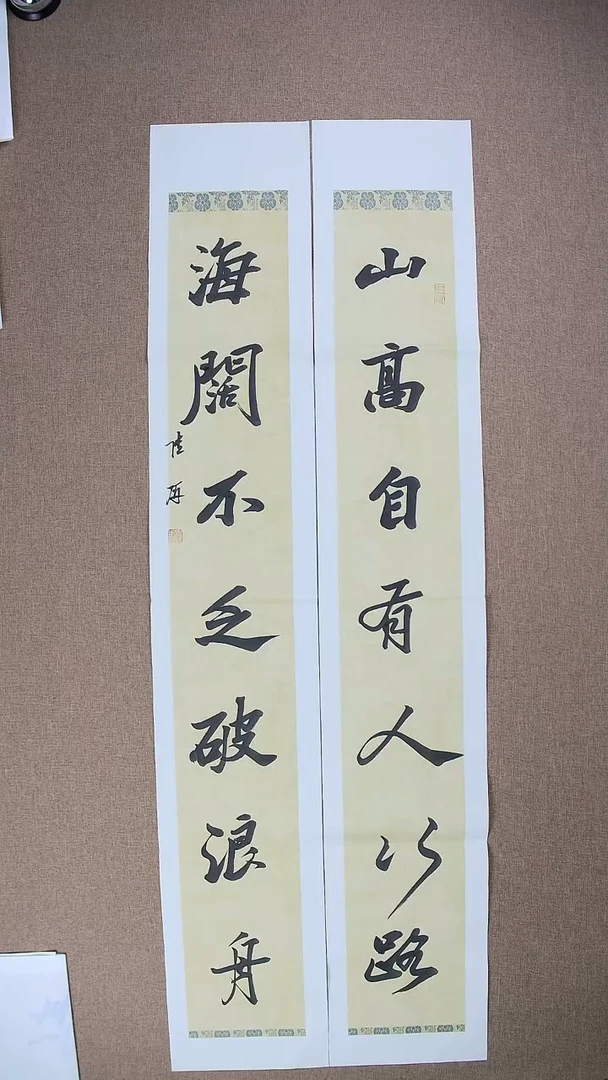 山高自有人行路
海闊不乏破浪舟